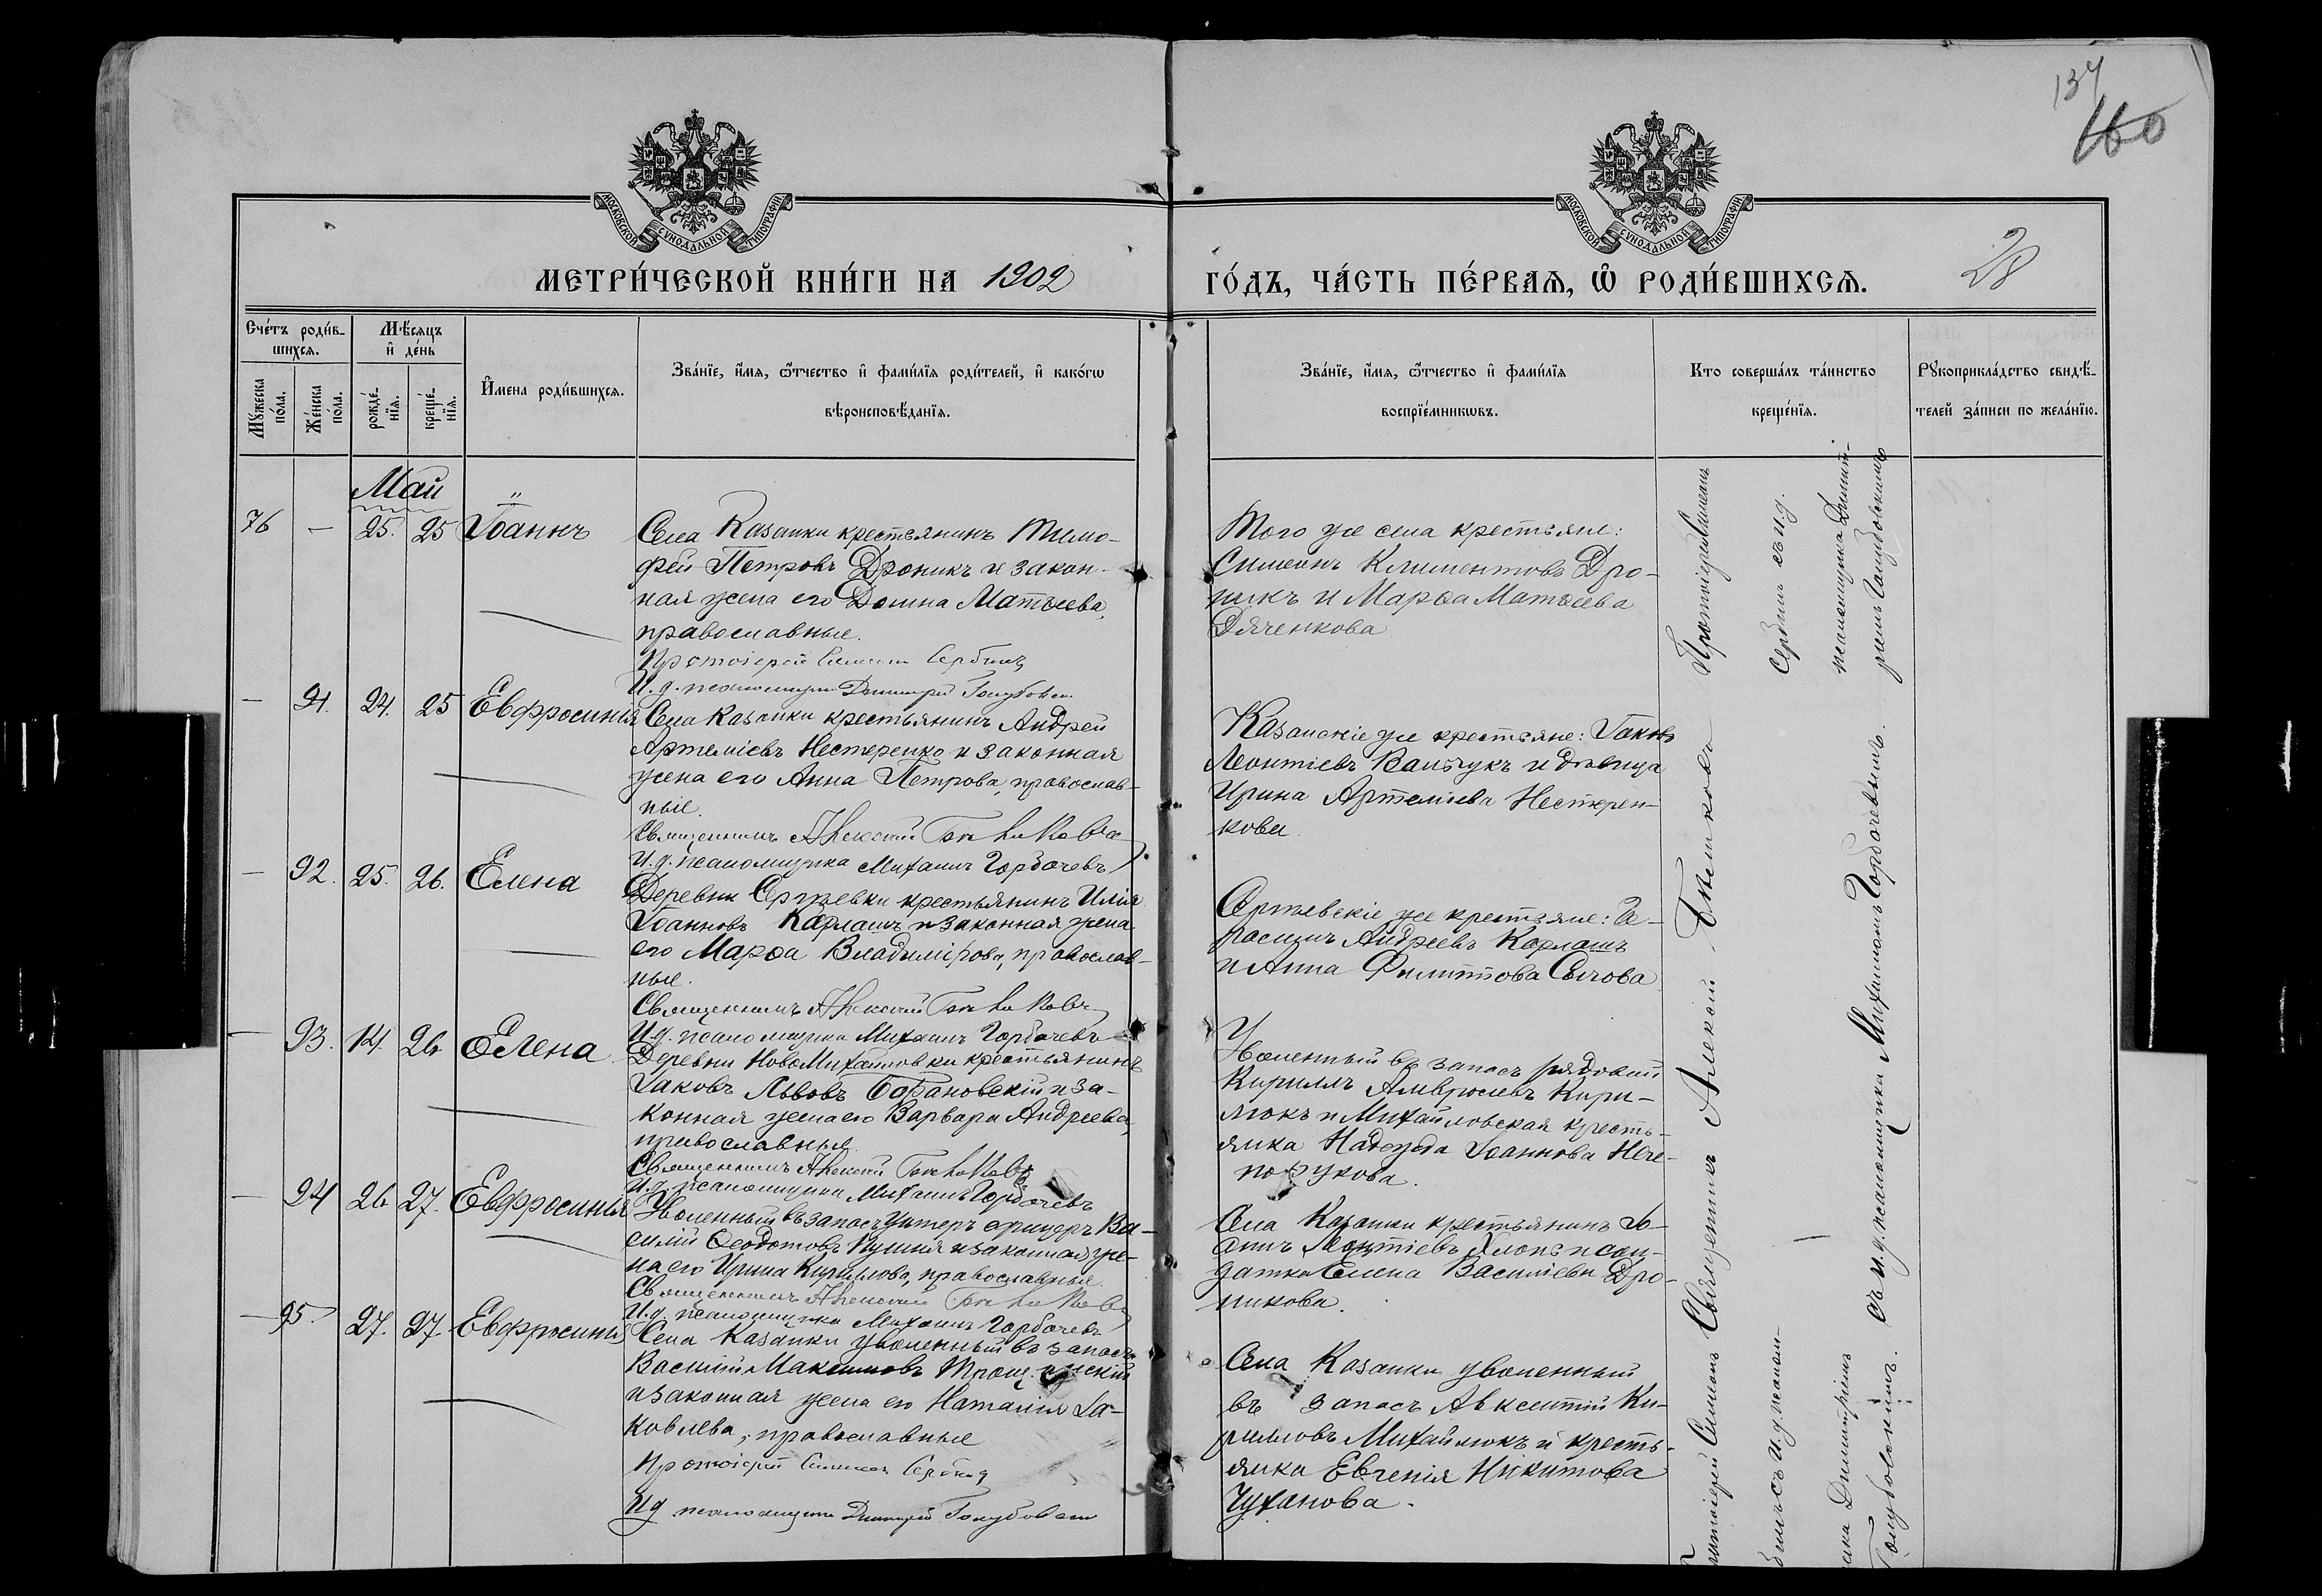 137
160
МОСКОВСКОЙ СУНОДАЛЬНОЙ ТИПОГРАФІИ
МОСКОВСКОЙ СУНОДАЛЬНОЙ ТИПОГРАФІИ
МЕТРИ́ЧЕСКОЙ КНИ́ГИ НА 1902
ГО́ДЪ, ЧА́СТЬ ПЕ́РВАЯ, Ѿ РОДИ́ВШИХСЯ.
28
Сче́тъ роди́в-
шихся.
Мѣ́сяцъ
и҆ де́нь
Мꙋ́жеска по́ла.
Же́нска по́ла.
рожде́-
нїѧ.
креще́-
нїѧ.
И҆мена роди́вшихсѧ.
Зва́нїе, и҆́мѧ, ѻ҆́тчество и҆ фами́лїѧ роди́телей, и҆ како́гѡ
вѣроисповѣ́данїѧ.
Зва́нїе, и҆́мѧ, ѻ҆́тчество и҆ фами́лїѧ
воспрїе́мникѡвъ.
Кто соверша́лъ та́инство
креще́нїѧ.
Рꙋкоприкла́дство свидѣ́-
телей за́писи по жела́нїю.
Май
76 — 25. 25 Іоаннъ
Села Казанки крестьянинъ Тимо-
фей Петровъ Дроникъ и закон-
ная жена его Домна Матѳеева,
православные.
Протоіерей Симеонъ Сербинъ
И. д. псаломщика Димитрій Голубовскій
Того же села крестьяне:
Симеонъ Климентовъ Дро-
никъ и Марѳа Матѳеева
Дяченкова
Протоіерей Симеонъ
Сербинъ съ и. д.
псаломщика Димит-
ріемъ Голубовскимъ
— 91. 24. 25 Евфросинія
Села Казанки крестьянинъ Андрей
Артеміевъ Нестеренко и законная
жена его Анна Петрова, православ-
ные.
Священникъ Алексій
И. д. псаломщика Михаилъ Горбачевъ
Казанскіе же крестьяне: Іаковъ
Леонтіевъ и дѣвица
Ирина Артеміева Нестерен-
кова.
— 92. 25. 26. Елена
Деревни Сергѣевки крестьянинъ Илія
Іоанновъ Карлашъ и законная жена
его Марѳа Владимірова, православ-
ные.
Священникъ Алексій
И. д. псаломщика Михаилъ Горбачевъ
Сергѣевскіе же крестьяне: Ге-
расимъ Андреевъ Карлашъ
и Анна Филиппова Сычова
— 93. 14. 26 Елена
Деревни НовоМихайловки крестьянинъ
Іаковъ Львовъ Барановскій и за-
конная жена его Варвара Андреева,
православные.
Священникъ Алексій
И. д. псаломщика Михаилъ Горбачевъ
Уволенный въ запасъ рядовой
Кириллъ Амвросіевъ Кири-
люкъ и Михайловская кресть-
янка Надежда Іоаннова Не-
порукова.
— 94 26 27. Евфросинія
Уволенный въ запасъ унтеръ офицеръ Ва-
силій Ѳеодотовъ и законная же-
на его Ирина Кириллова, православные.
Священникъ Алексій
И. д. псаломщика Михаилъ Горбачевъ
Села Казанки крестьянинъ Іо-
аннъ Леонтіевъ и сол-
датка Елена Василіева Дро-
никова.
— 95. 27. 27. Евфросинія
Села Казанки уволенный въ запасъ
Василій Максимовъ
и законная жена его Наталія Іа-
ковлева, православные
Протоіерей Симеонъ Сербинъ
И д псаломщика Димитрій Голубовскій
Села Казанки уволенный
въ запасъ Авксентій Ки-
рилловъ Михайлюкъ и кресть-
янка Евгенія Никитова
Чуханова.
Священникъ Алексій
съ и. д. псаломщика Михаиломъ Горбачевымъ.
Протоіерей Симеонъ
съ и. д. псалом-
щика Димитріемъ
Голубовскимъ.